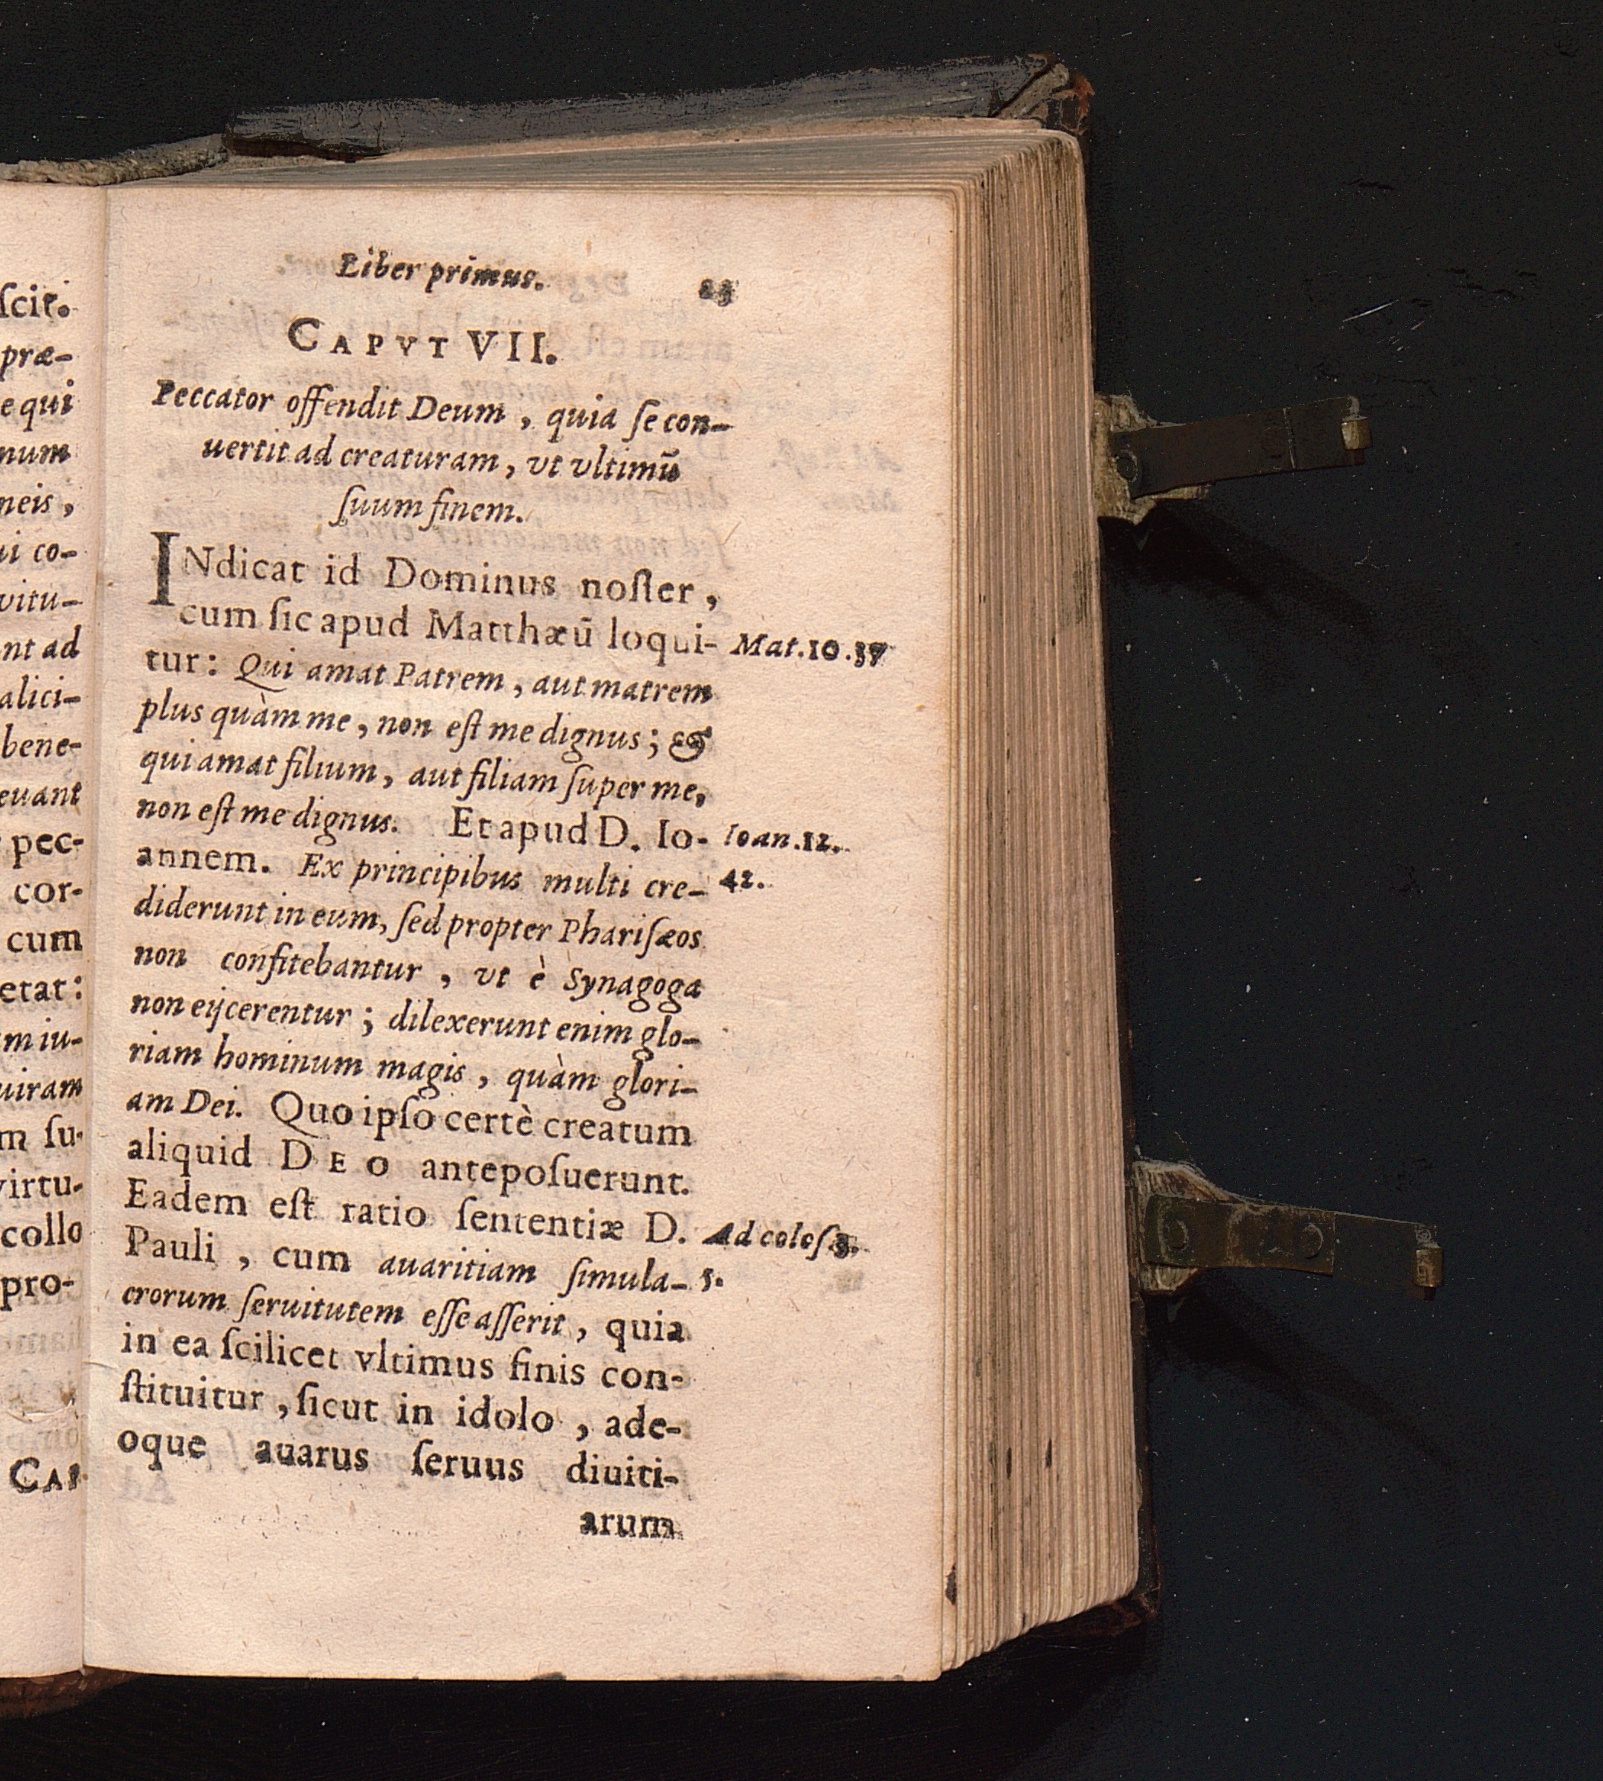 ſcit.
præ-
e qui
num
neis,
ui co-
vitu-
nt ad
alici-
bene-
euant
pec-
cor-
cum
etat:
m iu-
uiram
m ſu-
virtu-
collo
pro-
CAP.
Liber primus. 25
CAPVT VII.
Peccator offendit Deum, quia ſe con-
uertit ad creaturam, vt vltimū
ſuum finem.
INdicat id Dominus noſter,
cum ſic apud Matthæū loqui- Mat.10.37
tur: Qui amat Patrem, aut matrem
plus quàm me, non eſt me dignus; &
qui amat filium, aut filiam ſuper me,
non eſt me dignus. Et apud D. Io- Ioan.12.
annem. Ex principibus multi cre- 42.
diderunt in eum, ſed propter Phariſæos
non confitebantur, vt è Synagoga
non eijcerentur; dilexerunt enim glo-
riam hominum magis, quàm glori-
am Dei. Quo ipſo certè creatum
aliquid DEO antepoſuerunt.
Eadem eſt ratio ſententiæ D. Ad coloſ.3.
Pauli, cum auaritiam ſimula- 5.
crorum ſeruitutem eſſe aſſerit, quia
in ea ſcilicet vltimus finis con-
ſtituitur, ſicut in idolo, ade-
oque auarus ſeruus diuiti-
arum